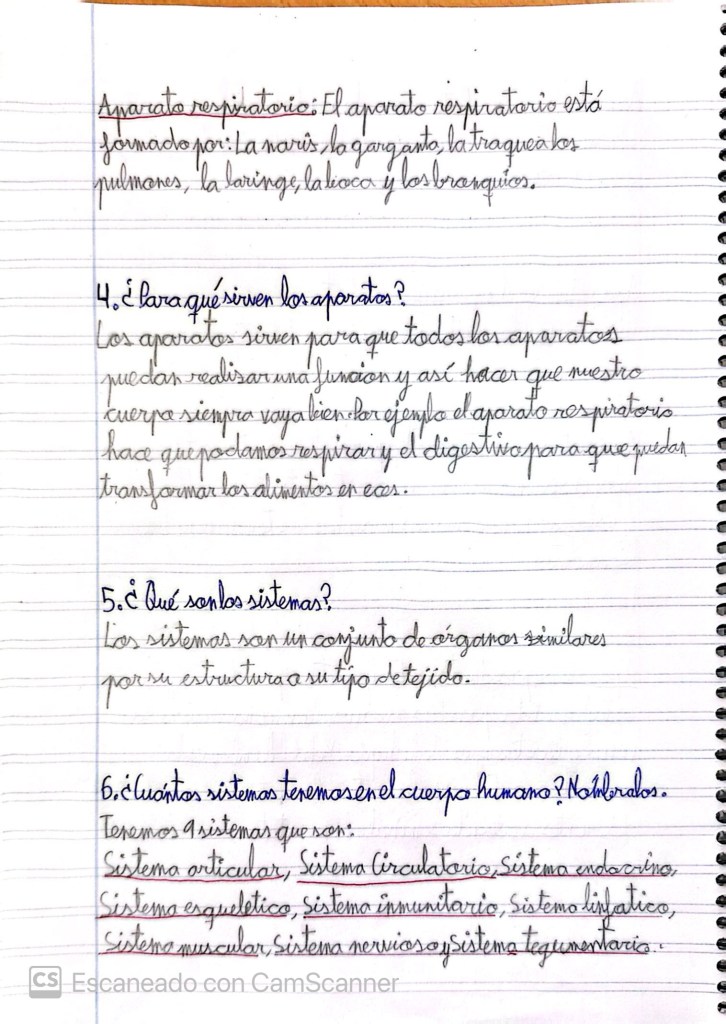 Aparato respiratorio: El aparato respiratorio está
formado por: La narís, la garganta, la traquea los
pulmones, la laringe, la boca y los bronquios.
4. ¿Para qué sirven los aparatos?
Los aparatos sirven para que todos los aparatos
puedan realisar una funcion y así hacer que nuestro
cuerpo siempre vaya bien. Por ejemplo el aparato respiratorio
hace que podamos respirar y el digestivo para que puedan
transformar los alimentos en eces.
5. ¿Qué son los sistemas?
Los sistemas son un conjunto de órganos similares
por su estructura o su tipo de tejido.
6. ¿Cuántos sistemas tenemos en el cuerpo humano? Nómbralos.
Tenemos 9 sistemas que son:
Sistema articular, Sistema Circulatorio, Sistema endocrino,
Sistema esqueletico, Sistema inmunitario, Sistema linfatico,
Sistema muscular, Sistema nervioso y Sistema tegumentario.
CS Escaneado con CamScanner